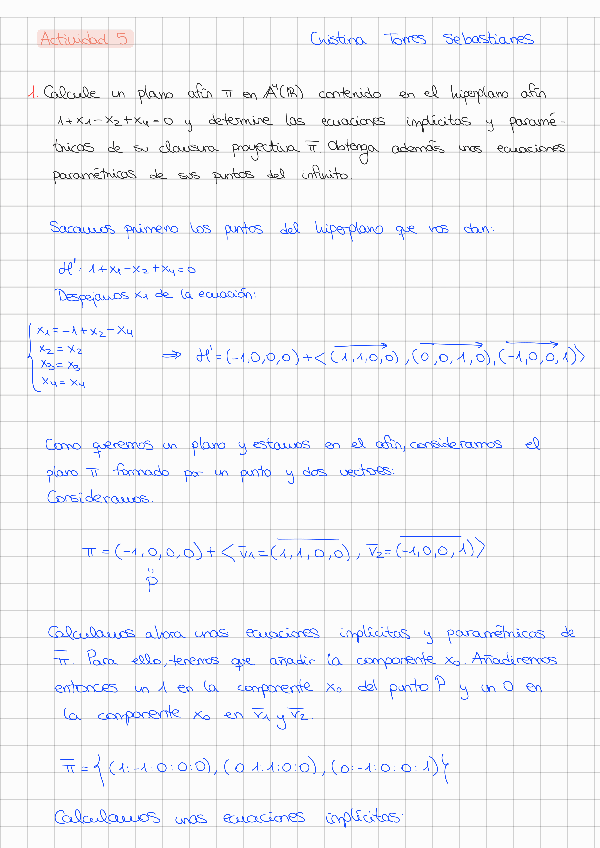 Actividad 5
Cristina Torres Sebastianes
1. Calcule un plano afín π en A⁴(ℝ) contenido en el hiperplano afín
1+x₁-x₂+x₄=0 y determine las ecuaciones implícitas y paramé-
tricas de su clausura proyectiva π̅. Obtenga además unas ecuaciones
paramétricas de sus puntos del infinito.
Sacamos primero los puntos del hiperplano que nos dan:
H': 1+x₁-x₂+x₄=0
Despejamos x₁ de la ecuación:
x₁=-1+x₂-x₄
x₂=x₂
x₃=x₃
x₄=x₄
⇒ H'=(-1,0,0,0)+<(1,1,0,0),(0,0,1,0),(-1,0,0,1)>
Como queremos un plano y estamos en el afín, consideramos el
plano π formado por un punto y dos vectores:
Consideramos.
π=(-1,0,0,0)+<v̅₁=(1,1,0,0), v̅₂=(-1,0,0,1)>
p
Calculamos ahora unas ecuaciones implícitas y paramétricas de
π̅. Para ello, tenemos que añadir la componente x₀. Añadiremos
entonces un 1 en la componente x₀ del punto P y un 0 en
la componente x₀ en v̅₁ y v̅₂.
π̅={(1:-1:0:0:0),(0:1:1:0:0),(0:-1:0:0:1)}
Calculamos unas ecuaciones implícitas: